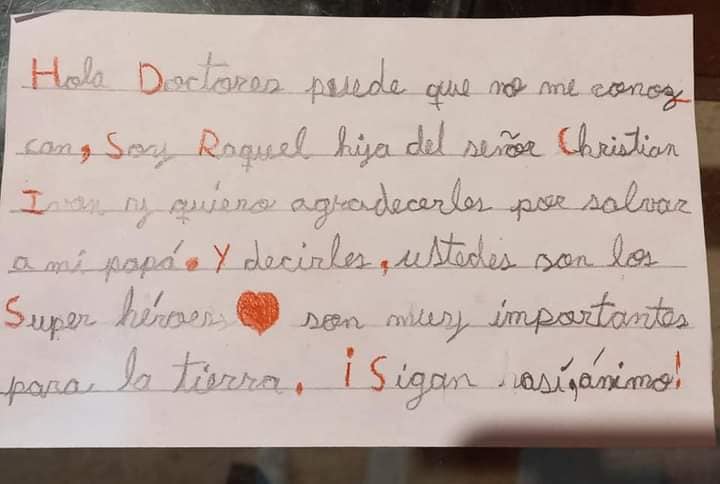 Hola Doctores puede que no me conoz
can, Soy Raquel hija del señor Christian
Ivan y quiero agradecerles por salvar
a mi papá. Y decirles, ustedes son los
Super héroes son muy importantes
para la tierra. ¡Sigan así, ánimo!